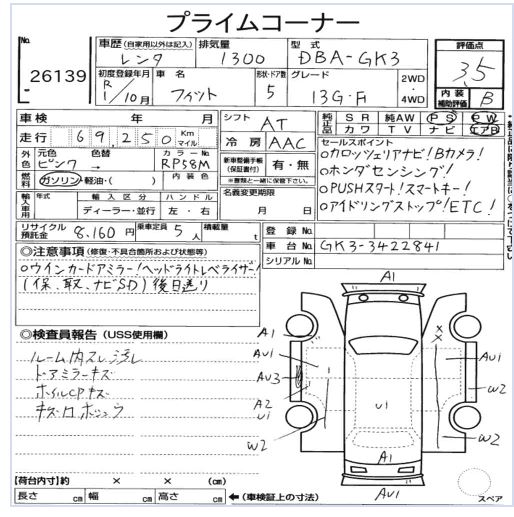 プライムコーナー
No.
26139
車歴 (自家用以外は記入)
レンタ
排気量
1300
型式
DBA-GK3
評価点
3.5
初度登録年月
R1/10月
車名
フィット
形状・ドア数
5
グレード
13G・F
2WD
・
4WD
内装
補助評価
B
車検 年 月
走行 69,250 Km マイル
シフト
AT
冷房
AAC
純正品
SR 純AW PS PW
カワ TV ナビ エアB
外色
元色 色替
ピンク →
カラーNo.
RP58M
燃料
ガソリン・軽油・( )
内装色
新車整備手帳
(保証書)
有・無
※書類と一緒に保管下さい。
セールスポイント
○カロッツェリアナビ!Bカメラ!
○ホンダセンシング!
○PUSHスタート!スマートキー!
○アイドリングストップ!ETC!
輸入車用
年式
輸入区分
ディーラー・並行
ハンドル
左・右
名義変更期限
月 日
リサイクル預託金
8,160円
乗車定員
5人
積載量
t
登録No.
車台No.
GK3-3422841
シリアルNo.
◎注意事項 (修復・不具合箇所および状態等)
○ウインカードアミラー!ヘッドライトレベライザー!
(保、取、ナビSD)後日送り
◎検査員報告 (USS使用欄)
ルーム内スレ汚レ
ドアミラーキズ
ホイルCPキズ
A1
A1
AU1
AU3
A2
U1
W2
U1
×
×
AU1
W2
W2
A1
AU1
スペア
【荷台内寸】約 × × (cm)
長さ cm 幅 cm 高さ cm ←(車検証上の寸法)